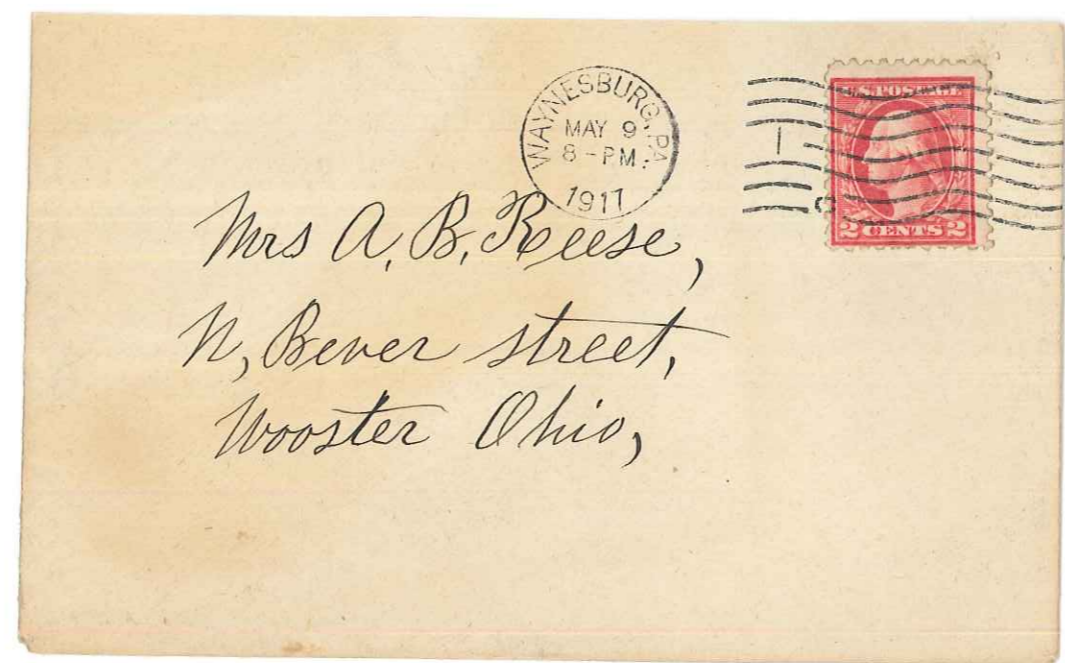 WAYNESBURG, PA.
MAY 9
8-PM
1917
1
U.S. POSTAGE
2 CENTS 2
Mrs A. B. Reese,
N, Bever street,
Wooster Ohio,